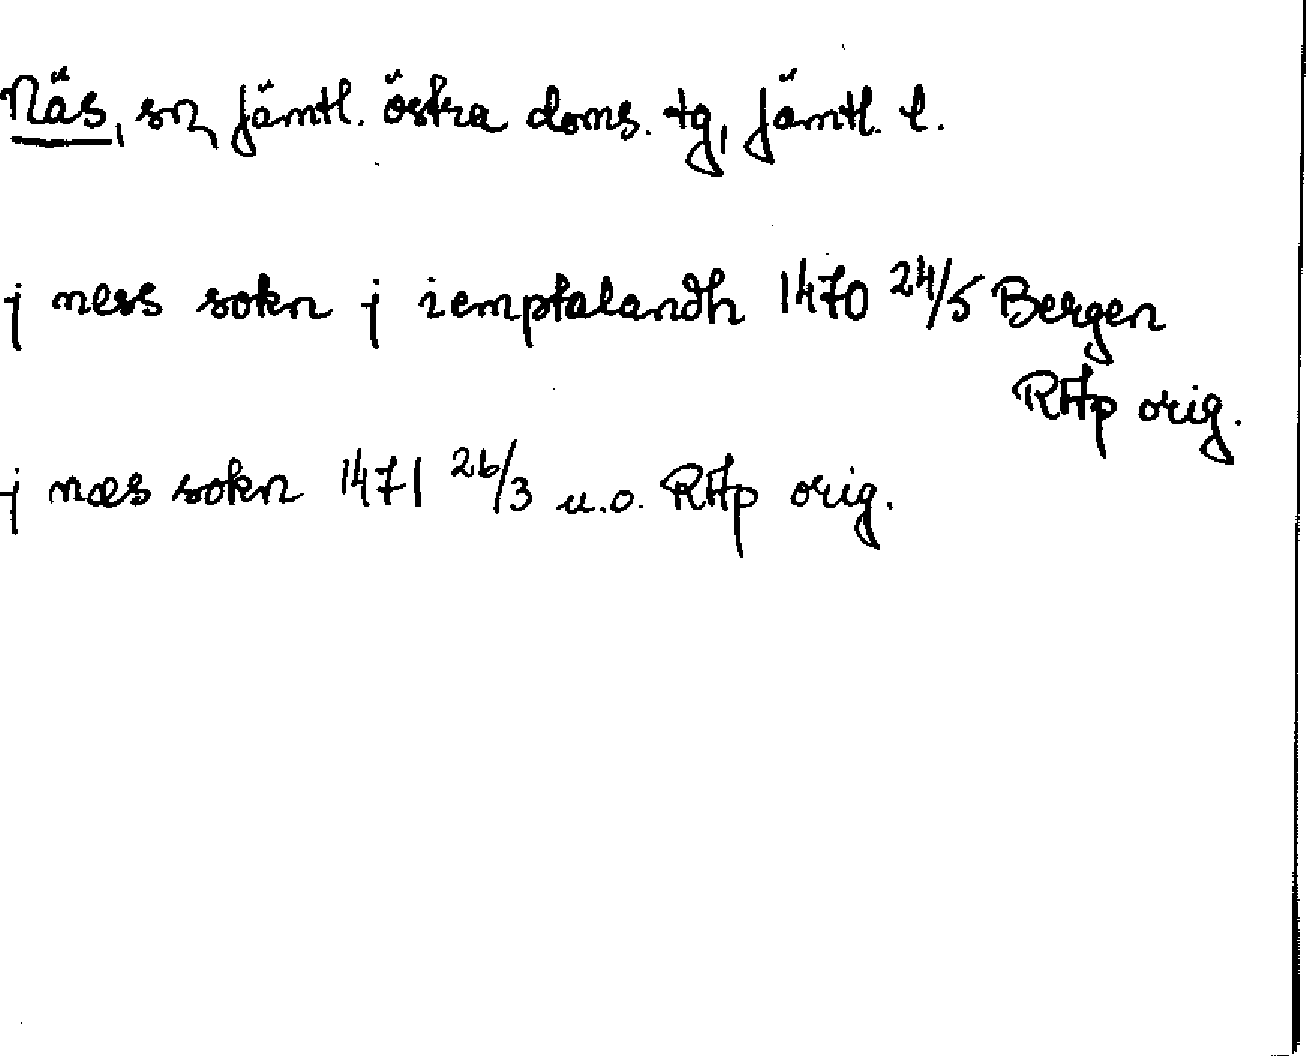 Näs, sn, Jämtl. östra doms. tg, Jämtl. l.
j ness sokn j iemptalandh 1470 24/5 Bergen
RAp orig.
j næs sokn 1471 26/3 u.o. RAp orig.